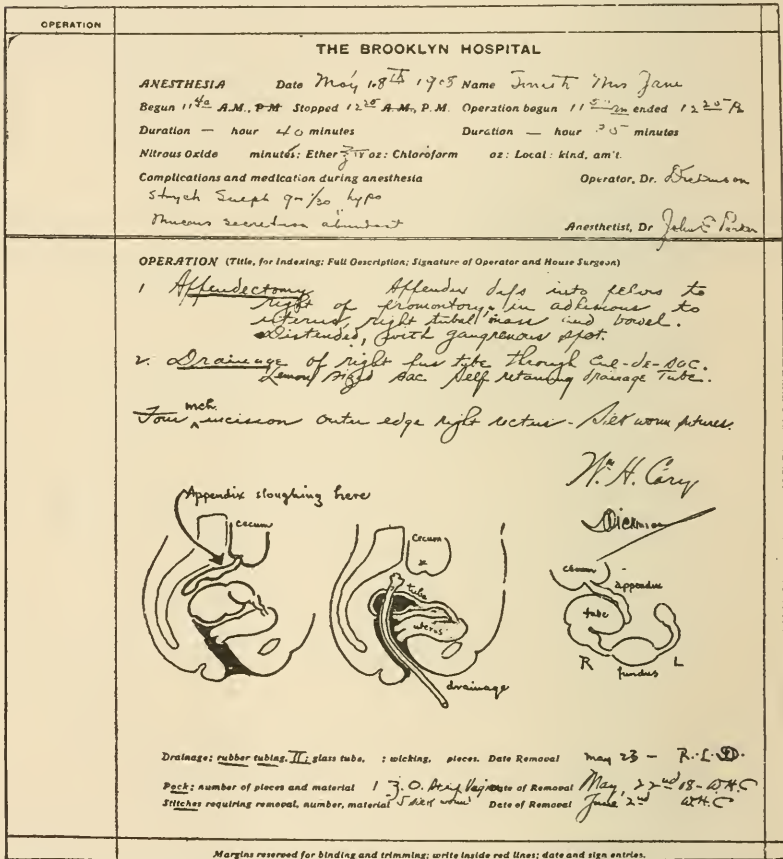 OPERATION
THE BROOKLYN HOSPITAL
ANESTHESIA Date May 18th 1908 Name Smith Mrs Jane
Begun 11 40 A.M., P.M. Stopped 12 20 A.M., P.M. Operation begun 11 ended 12 20 P.
Duration — hour 40 minutes Duration — hour 35 minutes
Nitrous Oxide minutes: Ether oz: Chloroform oz: Local: kind, am't.
Complications and medication during anesthesia Operator, Dr. Dickinson
Strych Sulph gr 1/30 hypo
Mucous secretion abundant Anesthetist, Dr John E Parker
OPERATION (Title, for Indexing: Full Description; Signature of Operator and House Surgeon)
1 Appendectomy Appendix dips into pelvis to
right of promontory, in adhesions to
uterus, right tubal mass and bowel.
Distended, with gangrenous spot.
2. Drainage of right pus tube through Cul-de-sac.
Lemon sized sac Self retaining drainage tube.
Four inch incision outer edge right rectus - Silk worm sutures.
Wm. H. Cary
Dickinson
Appendix sloughing here
cecum
Cecum
x
tube
uterus
drainage
cecum
appendix
tube
R fundus L
Drainage: rubber tubing, II; glass tube, ; wicking, pieces. Date Removal May 23 - R.L.D.
Pack: number of pieces and material 1 Date of Removal May, 22nd 08 - W.H.C
Stitches requiring removal, number, material 5 silk worm Date of Removal June 2nd W.H.C
Margins reserved for binding and trimming; write inside red lines; date and sign entries.